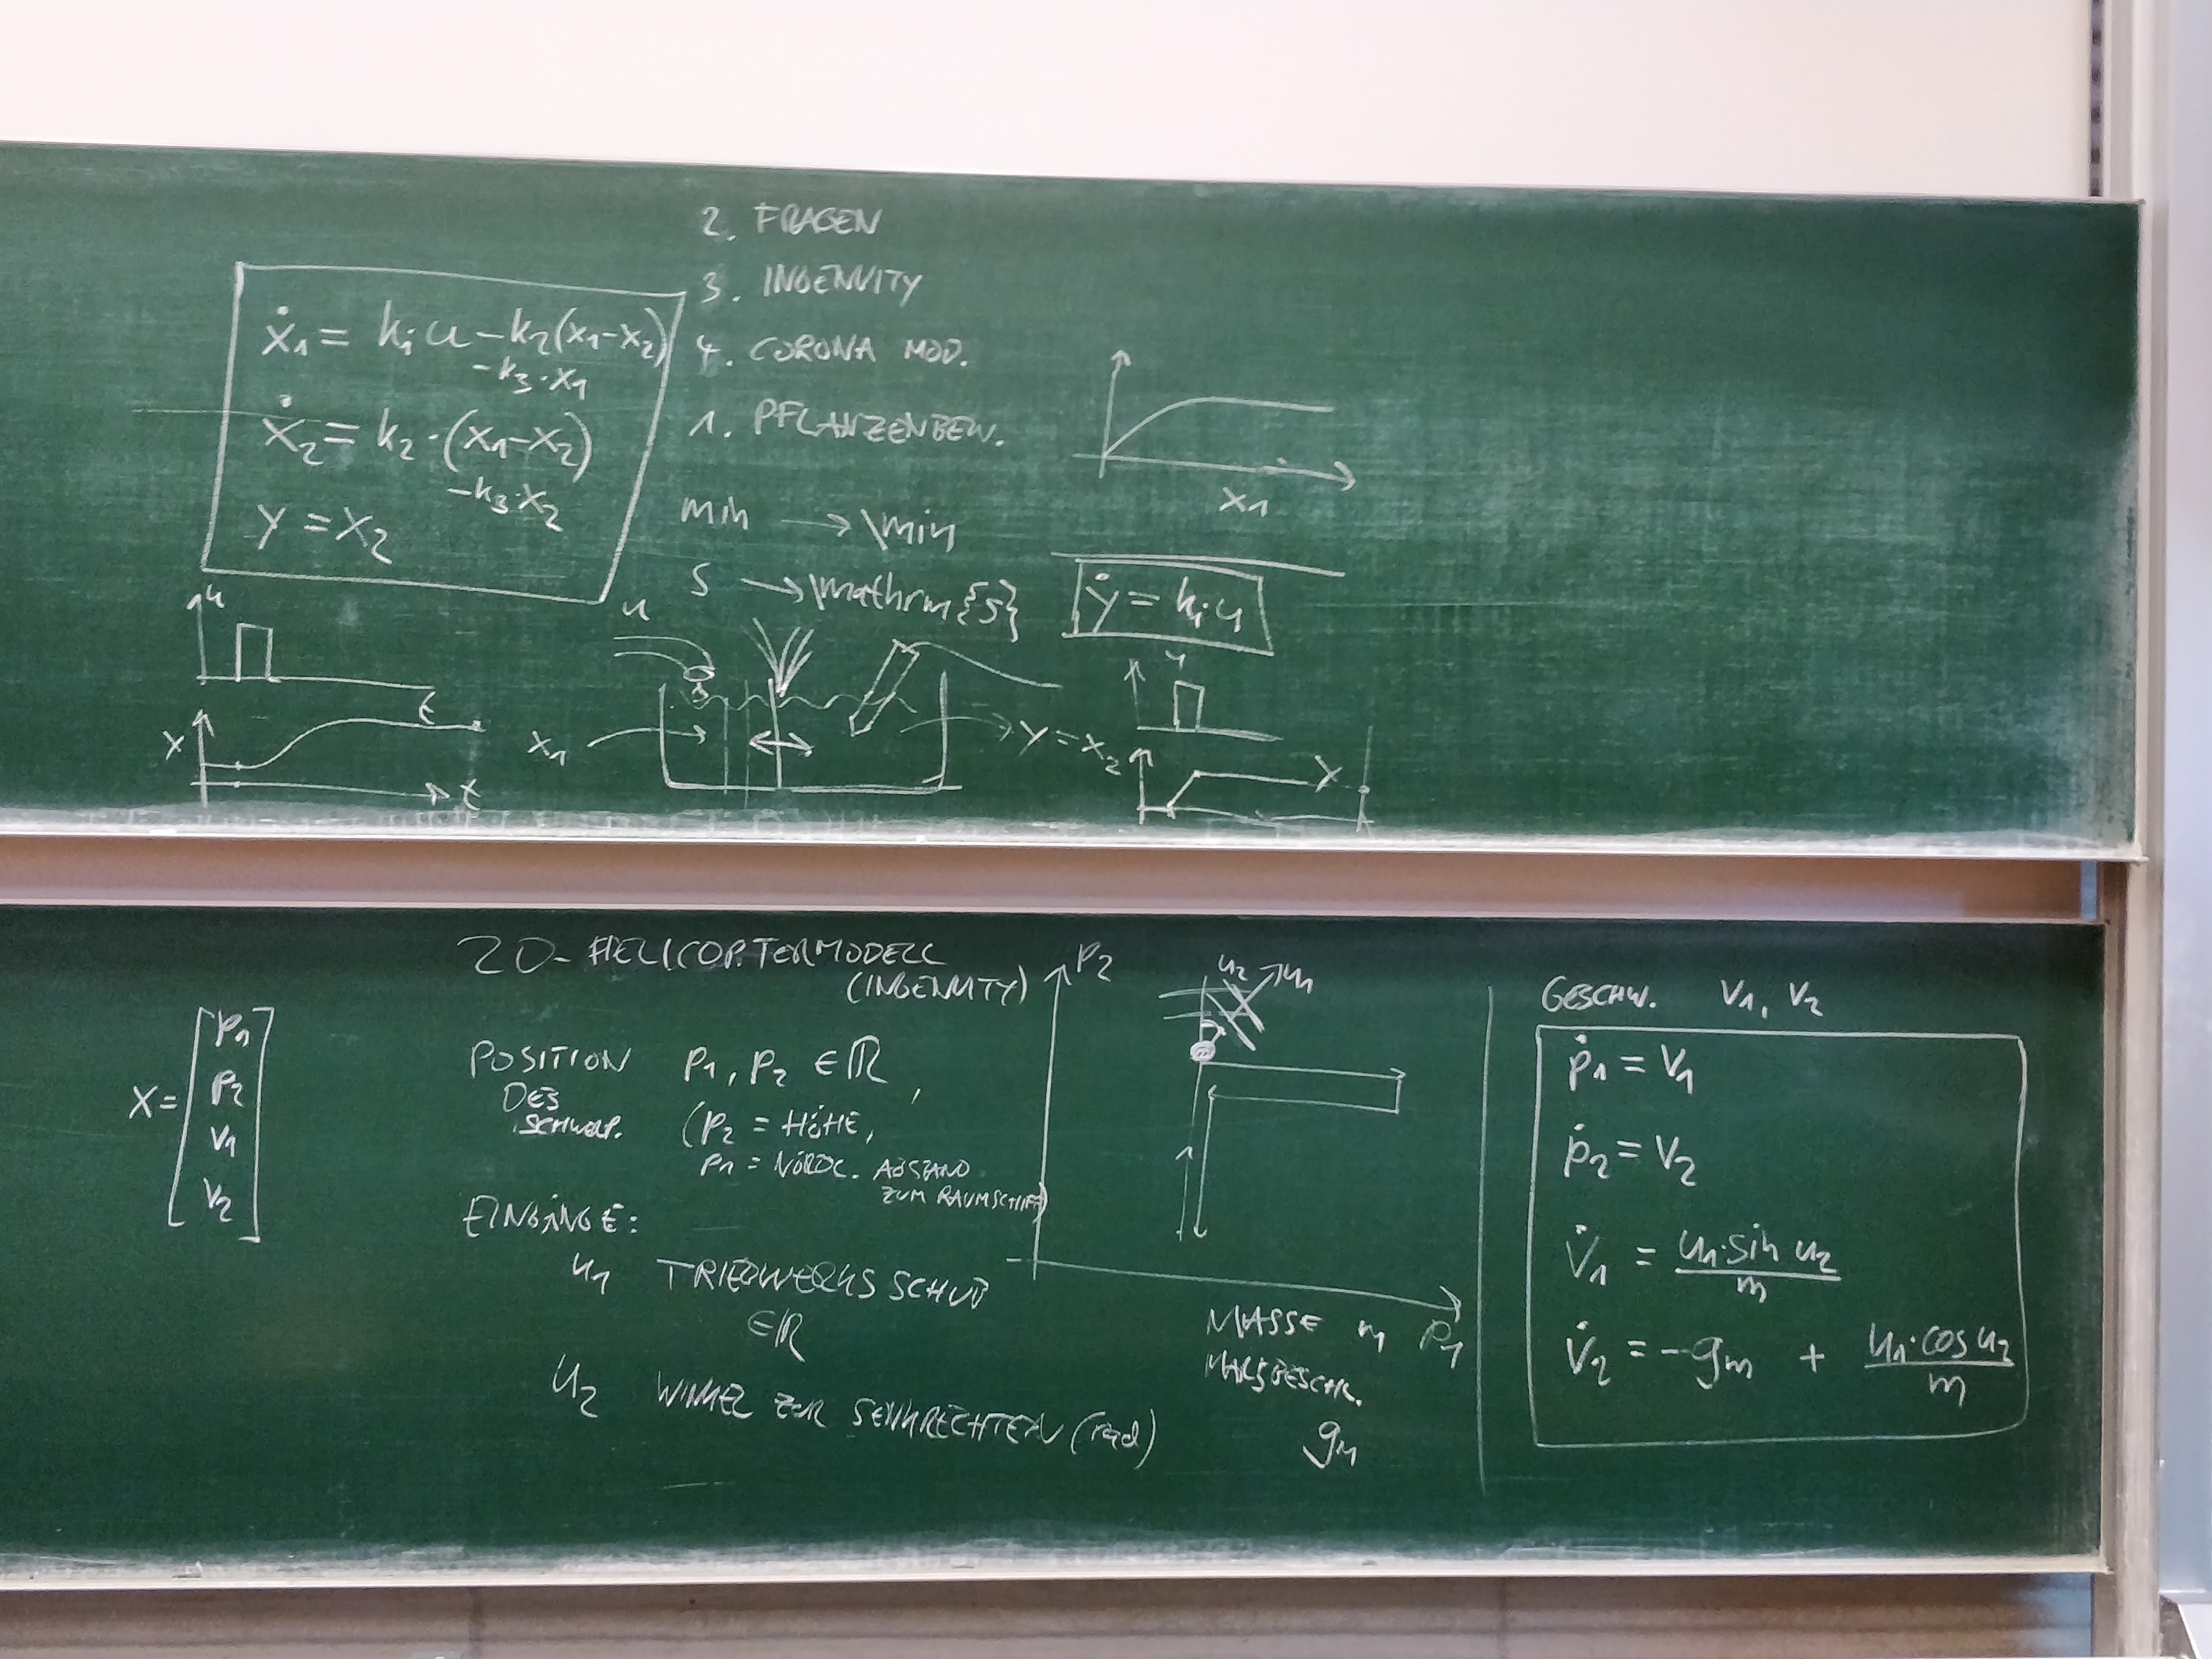 2. FRAGEN
3. INGENUITY
4. CORONA MOD.
1. PFLANZENBEW.
min → \min
s → \mathrm{s}
ẋ₁ = kᵢ u − k₂(x₁−x₂)
−k₃·x₁
ẋ₂ = k₂·(x₁−x₂)
−k₃·x₂
y = x₂
u
t
x
t
u
x₁
y = x₂
x₁
ẏ = kᵢ u
u
y
2D-HELICOPTERMODELL
(INGENUITY)
x = [p₁
p₂
v₁
v₂]
POSITION p₁, p₂ ∈ ℝ,
DES
SCHWERP. (p₂ = HÖHE,
p₁ = NÖRDL. ABSTAND
ZUM RAUMSCHIFF)
EINGÄNGE:
u₁ TRIEBWERKSSCHUB
∈ℝ
u₂ WINKEL ZUR SENKRECHTEN (rad)
p₂
u₂ u₁
p₁
MASSE m
MARSBESCHL.
gₘ
GESCHW. v₁, v₂
ṗ₁ = v₁
ṗ₂ = v₂
v̇₁ = u₁·sin u₂ / m
v̇₂ = −gₘ + u₁·cos u₂ / m